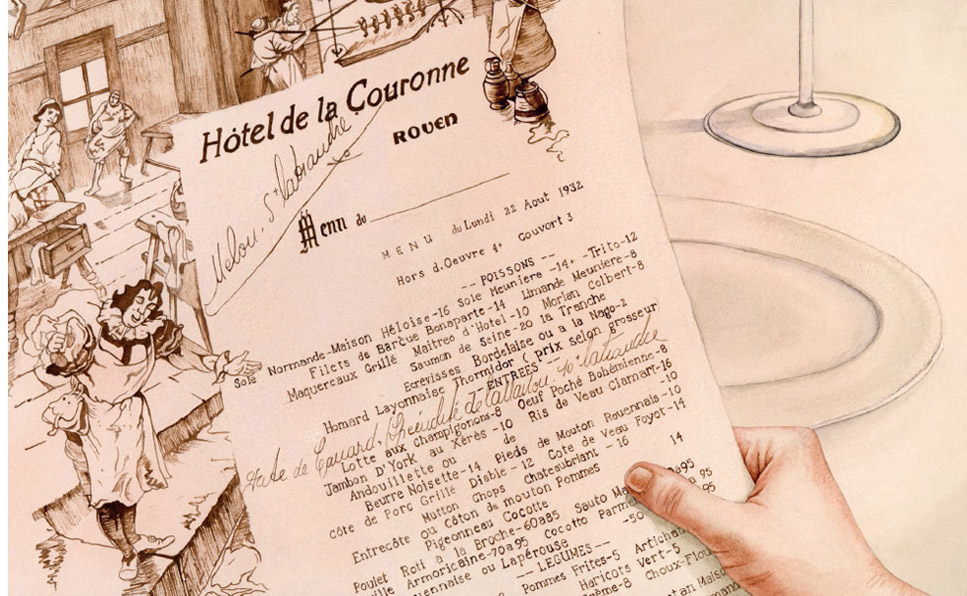 Hôtel de la Couronne
ROUEN
Melon,
Menu du
MENU du Lundi 22 Aout 1932
Hors d.Oeuvre 4+ Couvort 3
-- POISSONS --
Sole Normande-Maison Héloise-16 Sole Meuniere -14+ -Trito-12
Filets de Barcue Bonaparte-14 Limande Meuniere-8
Maquereaux Grillé Maitreo d'Hotel-10 Morlan Colbert-8
Saumon de Seine-20 la Tranche
Ecrevisses Bordelaise ou a la Nago-2
Homard Layonnaise Thormidor ( prix selgn grosseur
-- ENTREES
de Canard
Lotte aux champignons-8 Oeuf Poché Bohémienne-8
Jambon D'York au Xérès -10 Ris de Veau Clamart-16
Andouillette ou de -10
Beurre Noisette-14 Pieds de Mouton Rouennais -10
côte de Porc Grillé Diable-12 Cote de Veau Foyot-14
Mutton Chops Chateaubriant -16
Entrecôte ou Côton de mouton Pommes 14
Pigeonneau Cocotte
Poulet Roti a la Broche-60a85 Sauto a95
Armoricaine-70a95 Cocotto a 95
ou Lapérouse -50
-- LEGUMES --
Pommes Frites-5
Haricots Vert-5